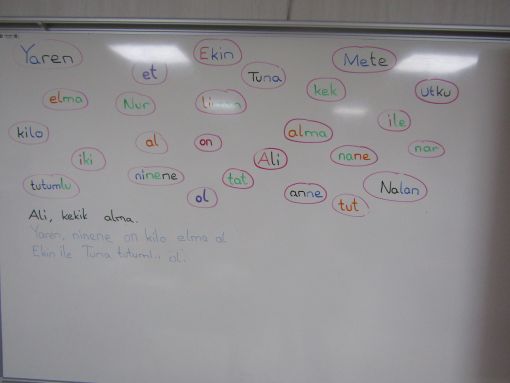 Yaren
Ekin
Mete
et
Tuna
kek
utku
elma
Nur
ile
kilo
al
on
alma
nar
iki
Ali
nane
ninene
tat
tutumlu
ol
anne
Nalan
tut
Ali, kekik alma.
Yaren, ninene on kilo elma al
Ekin ile Tuna tutumlu ol.